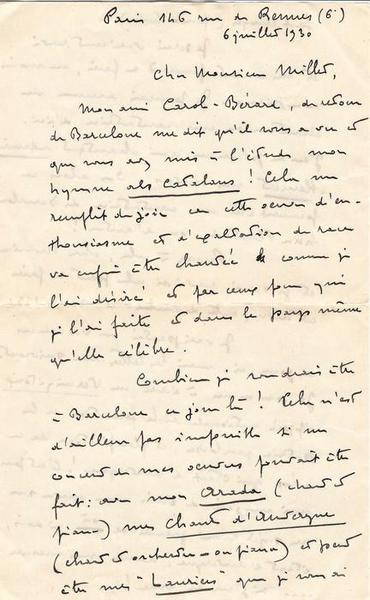 Paris 146 rue de Rennes (6e)
6 juillet 1930
Cher Monsieur Millet,
Mon ami Carol-Bérard, de retour
de Barcelone me dit qu'il vous a vu et
que vous avez mis à l'étude mon
hymne als Catalans ! Cela me
remplit de joie car cette oeuvre d'en-
thousiasme et d'exaltation de race
va enfin être chantée comme je
l'ai désiré et par ceux pour qui
je l'ai faite et dans le pays même
qu'elle célèbre.
Combien je voudrais être
à Barcelone ce jour là ! Cela n'est
d'ailleurs pas impossible si un
concert de mes oeuvres pouvait être
fait : avec mon Arada (chant et
piano) mes Chants d'Auvergne
(chant et orchestre - ou piano) et peut
être mes "Lauriers" que je vous ai